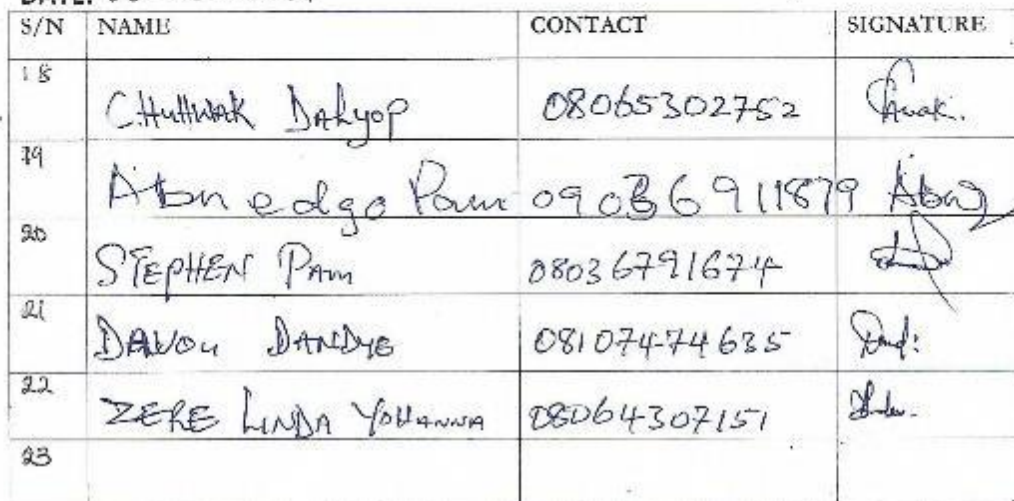 DATE:
S/N NAME CONTACT SIGNATURE
18 CHUHWAK DAHYOP 08065302752
19 Abnedgo Pam 09036911879
20 STEPHEN PAM 08036791674
21 DAVOU DANDYE 08107474635
22 ZERE LINDA YOHANNA 08064307151
23